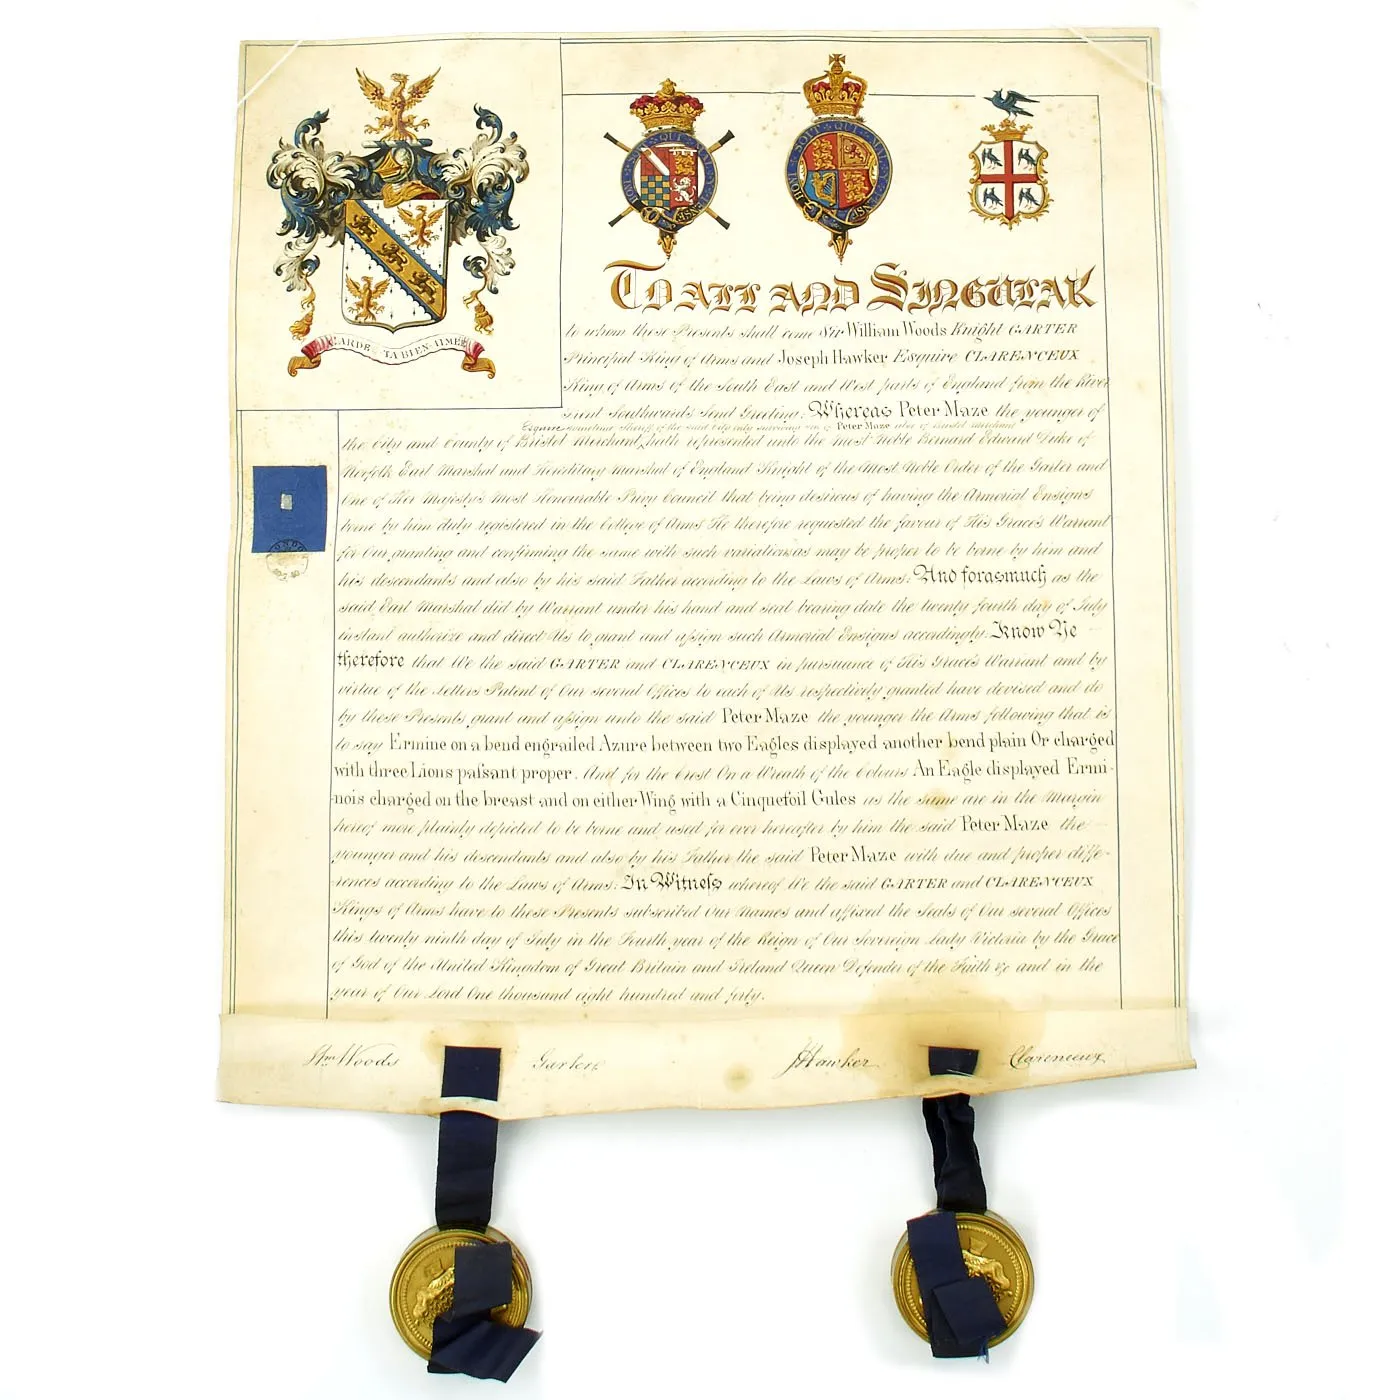 GARDE TA BIEN AIMÉE
HONI SOIT QUI MAL Y PENSE
HONI SOIT QUI MAL Y PENSE
TO ALL AND SINGULAR
to whom these Presents shall come Sir William Woods Knight GARTER
Principal King of Arms and Joseph Hawker Esquire CLARENCEUX
King of Arms of the South East and West parts of England from the River
Trent Southwards Send Greeting: Whereas Peter Maze the younger of
Esquire sometime Sheriff of the said City only surviving son of Peter Maze also of Bristol Merchant
the City and County of Bristol Merchant hath represented unto the most Noble Bernard Edward Duke of
Norfolk Earl Marshal and Hereditary Marshal of England Knight of the Most Noble Order of the Garter and
One of Her Majesty's Most Honourable Privy Council that being desirous of having the Armorial Ensigns
borne by him duly registered in the College of Arms He therefore requested the favour of His Grace's Warrant
for Our granting and confirming the same with such variations as may be proper to be borne by him and
his descendants and also by his said Father according to the Laws of Arms: And forasmuch as the
said Earl Marshal did by Warrant under his hand and seal bearing date the twenty fourth day of July
instant authorize and direct Us to grant and assign such Armorial Ensigns accordingly. Know Ye
therefore that We the said GARTER and CLARENCEUX in pursuance of His Grace's Warrant and by
virtue of the Letters Patent of Our several Offices to each of Us respectively granted have devised and do
by these Presents grant and assign unto the said Peter Maze the younger the Arms following that is
to say Ermine on a bend engrailed Azure between two Eagles displayed another bend plain Or charged
with three Lions passant proper. And for the Crest On a Wreath of the Colours An Eagle displayed Ermi-
-nois charged on the breast and on either Wing with a Cinquefoil Gules as the same are in the Margin
hereof more plainly depicted to be borne and used for ever hereafter by him the said Peter Maze the
younger and his descendants and also by his Father the said Peter Maze with due and proper diffe-
-rences according to the Laws of Arms: In Witness whereof We the said GARTER and CLARENCEUX
Kings of Arms have to these Presents subscribed Our Names and affixed the Seals of Our several Offices
this twenty ninth day of July in the Fourth year of the Reign of Our Sovereign Lady Victoria by the Grace
of God of the United Kingdom of Great Britain and Ireland Queen Defender of the Faith &c and in the
year of Our Lord One thousand eight hundred and forty.
Wm Woods Garter
J Hawker Clarenceux